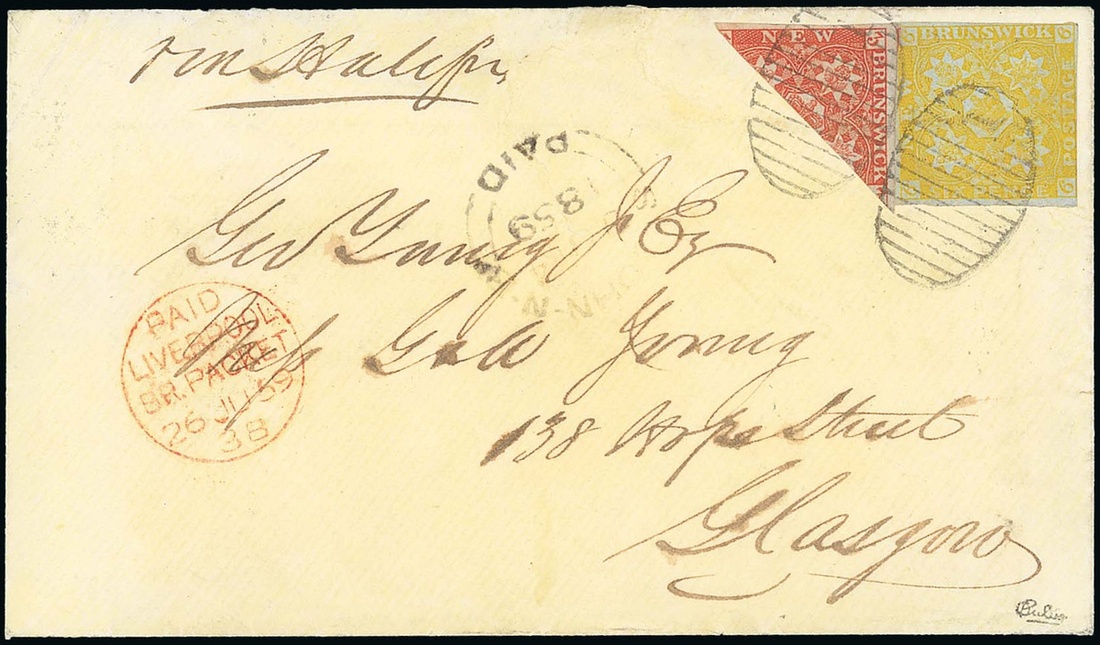 via Halifax
NEW
BRUNSWICK
BRUNSWICK
POSTAGE
SIX PENCE
6
6
6
PAID
1859
JOHN-N.B
Geo Young Jr Esq
PAID
LIVERPOOL
BR. PACKET
26 JU 59
3B
G & A Young
138 Hope Street
Glasgow